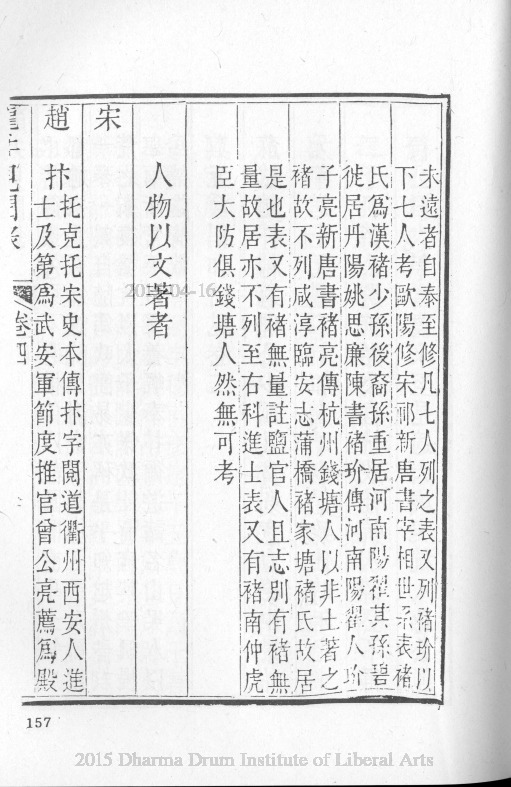 未遠者自泰至修凡七人列之表又列褚玠以
下七人考歐陽修宋祁新唐書宰相世系表褚
氏爲漢褚少孫後裔孫重居河南陽翟其孫䂮
徙居丹陽姚思廉陳書褚玠傳河南陽翟人玠
子亮新唐書褚亮傳杭州錢塘人以非土著之
褚故不列咸淳臨安志蒲橋褚家塘褚氏故居
是也表又有褚無量註鹽官人且志別有褚無
量故居亦不列至右科進士表又有褚南仲虎
臣大防俱錢塘人然無可考
人物以文著者
宋
趙
抃托克托宋史本傳抃字閱道衢州西安人進
士及第爲武安軍節度推官曾公亮薦爲殿
龍井見聞錄
卷四
157
2015-04-16
2015 Dharma Drum Institute of Liberal Arts